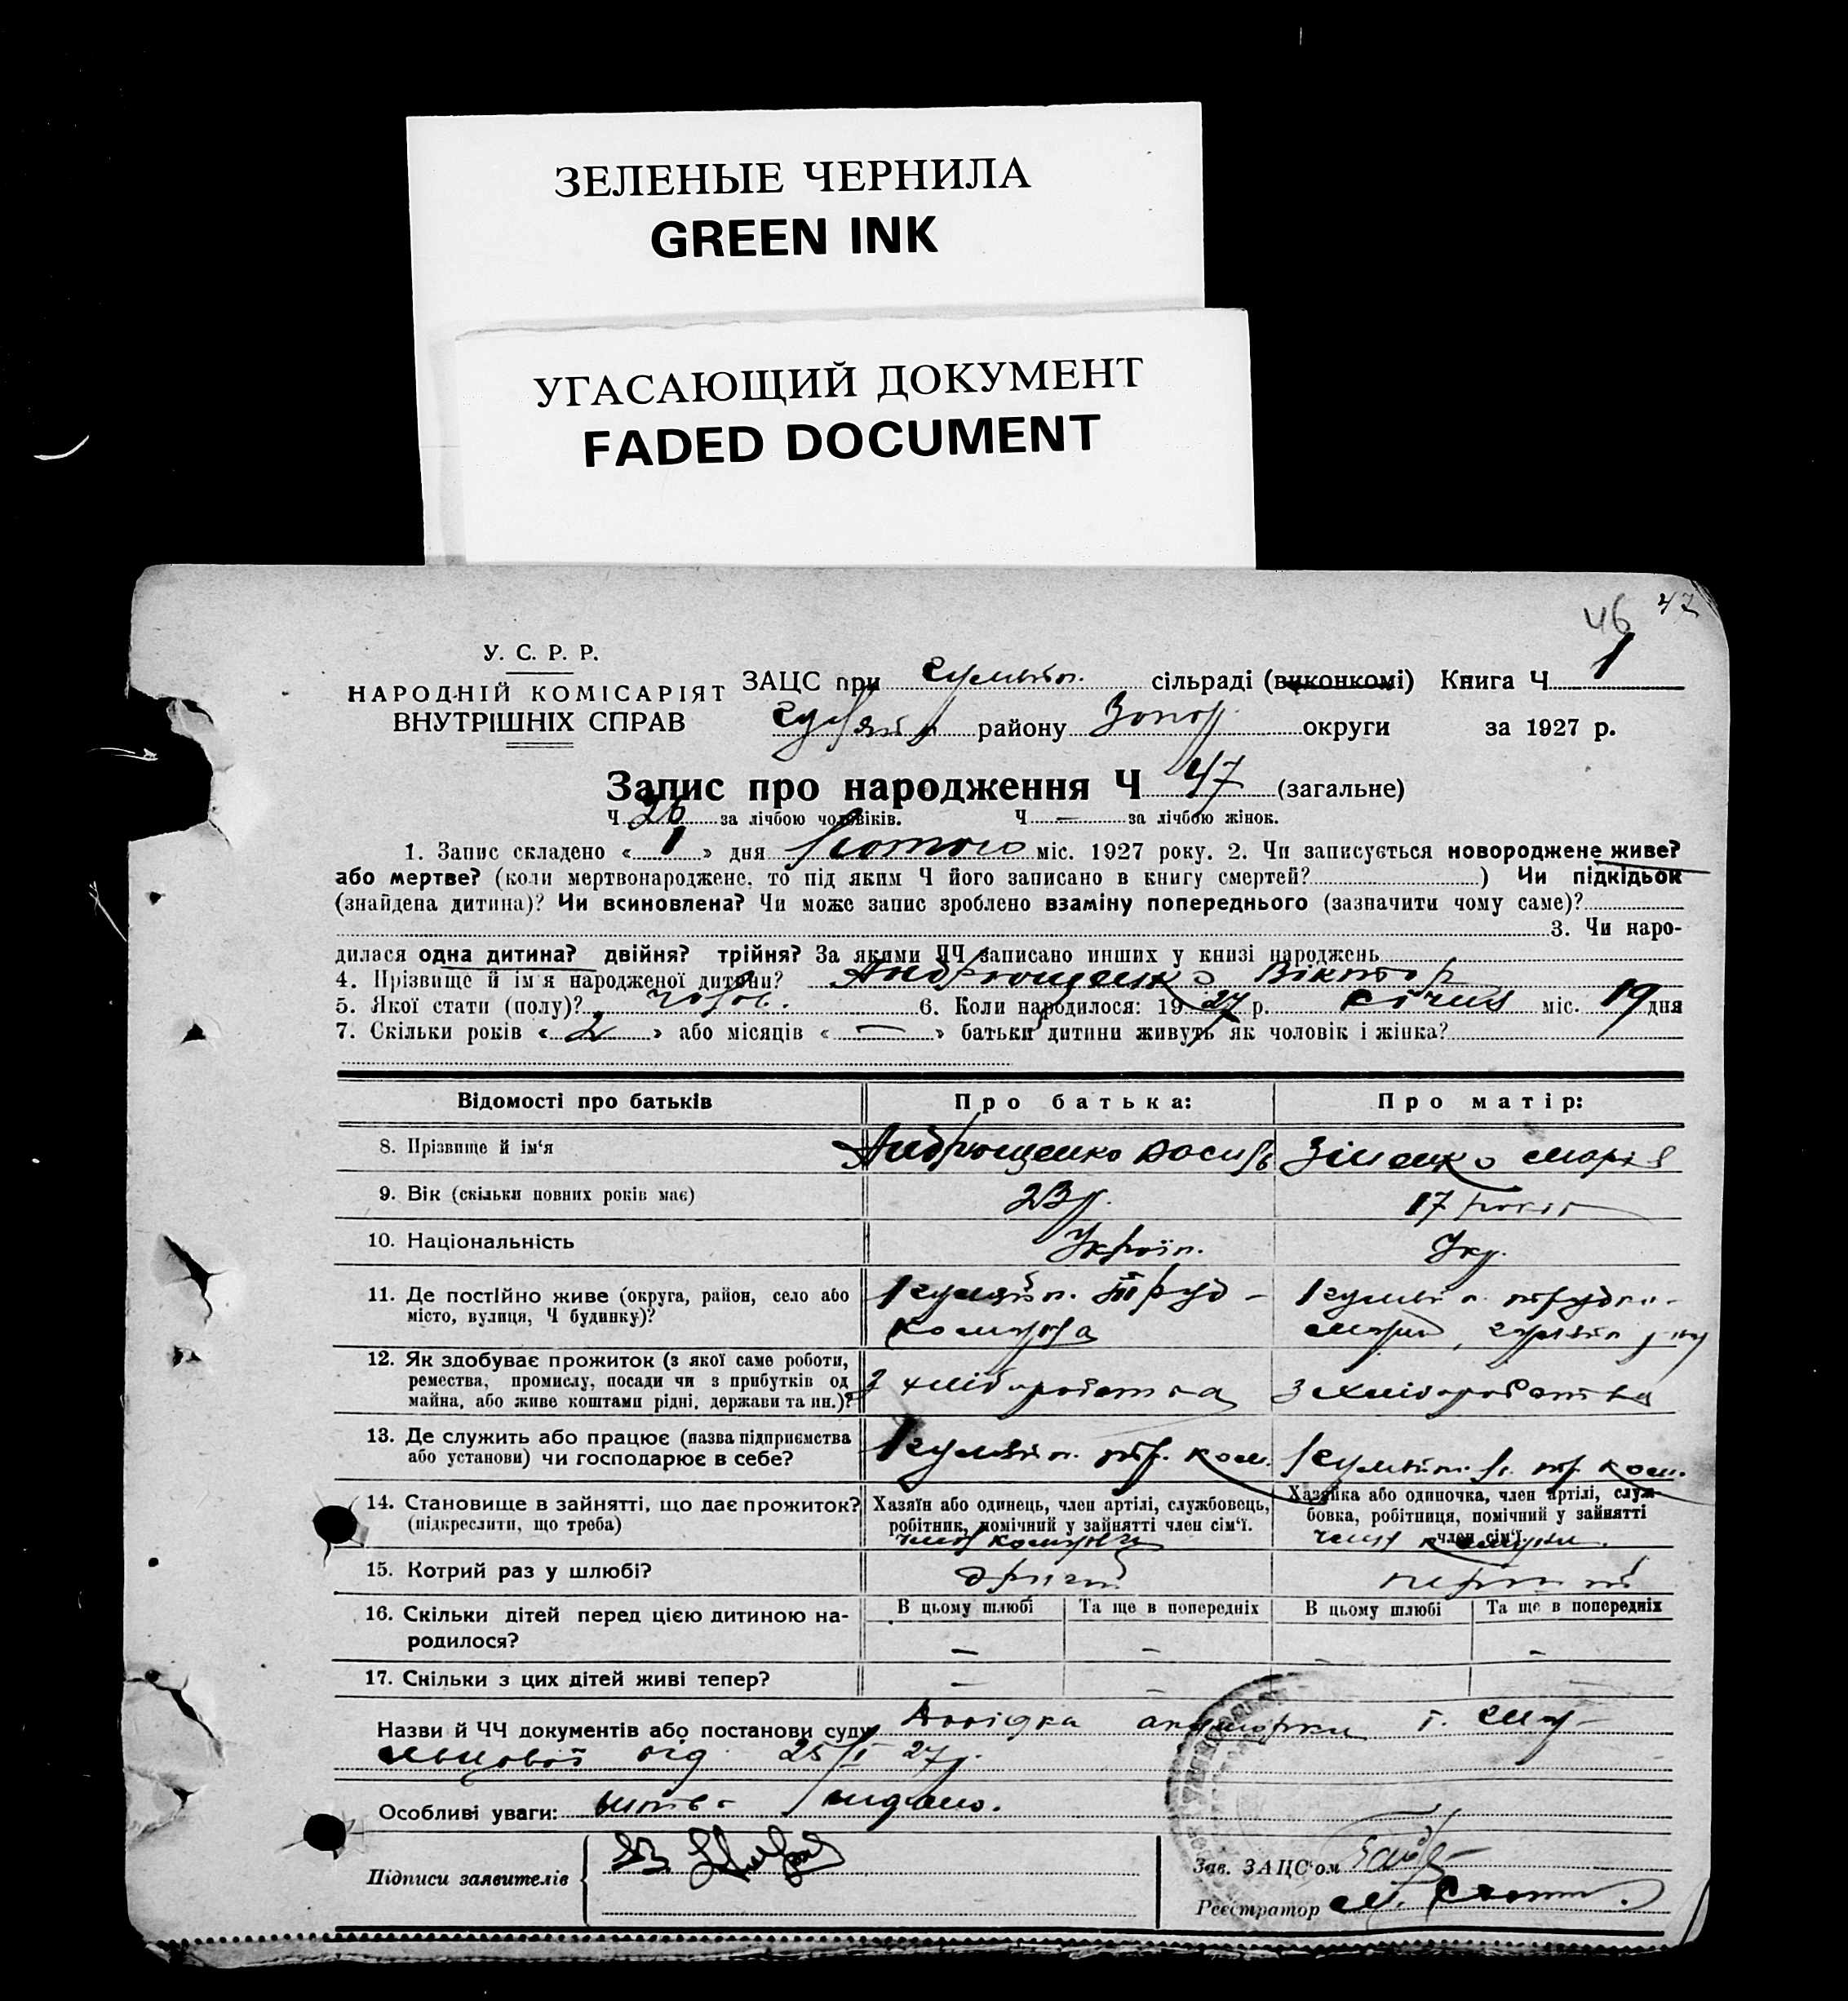 ЗЕЛЕНЫЕ ЧЕРНИЛА
GREEN INK
УГАСАЮЩИЙ ДОКУМЕНТ
FADED DOCUMENT
46 47
У. С. Р. Р.
НАРОДНІЙ КОМІСАРІЯТ
ВНУТРІШНІХ СПРАВ
ЗАЦС при сільраді (виконкомі) Книга Ч 1
району Запор. округи за 1927 р.
Запис про народження Ч 47 (загальне)
Ч 26 за лічбою чоловіків. Ч — за лічбою жінок.
1. Запис складено « 1 » дня Лютого міс. 1927 року. 2. Чи записується новороджене живе?
або мертве? (коли мертвонароджене, то під яким Ч його записано в книгу смертей? ) Чи підкідьок
(знайдена дитина)? Чи всиновлена? Чи може запис зроблено взаміну попереднього (зазначити чому саме)?
3. Чи наро-
дилася одна дитина? двійня? трійня? За якими ЧЧ записано инших у книзі народжень
4. Прізвище й ім'я народженої дитини? Андрющенко Віктор
5. Якої стати (полу)? чолов. 6. Коли народилося: 1927 р. січня міс. 19 дня
7. Скільки років « 2 » або місяців « — » батьки дитини живуть як чоловік і жінка?
Відомості про батьків Про батька: Про матір:
8. Прізвище й ім'я Андрющенко Василь Зіненко Марія
9. Вік (скільки повних років має) 23 р. 17 років
10. Національність Україн. Укр.
11. Де постійно живе (округа, район, село або
місто, вулиця, Ч будинку)?
Комуна
12. Як здобуває прожиток (з якої саме роботи,
ремества, промислу, посади чи з прибутків од
майна, або живе коштами рідні, держави та ин.)?
З хліборобства З хліборобства
13. Де служить або працює (назва підприємства
або установи) чи господарює в себе?
тр. ком. тр. ком.
14. Становище в зайнятті, що дає прожиток?
(підкреслити, що треба)
Хазяїн або одинець, член артілі, службовець,
робітник, помічний у зайнятті член сім'ї.
член комуни
Хазяйка або одиночка, член артілі, служ-
бовка, робітниця, помічний у зайнятті
член сім'ї
член комуни.
15. Котрий раз у шлюбі? другий перший
16. Скільки дітей перед цією дитиною на-
родилося?
В цьому шлюбі Та ще в попередніх В цьому шлюбі Та ще в попередніх
— — — —
17. Скільки з цих дітей живі тепер? — —
Назви й ЧЧ документів або постанови суду Довідка акушерки
від 25/I 27 р.
Особливі уваги: видано.
Підписи заявителів
Зав. ЗАЦС'ом
Реєстратор